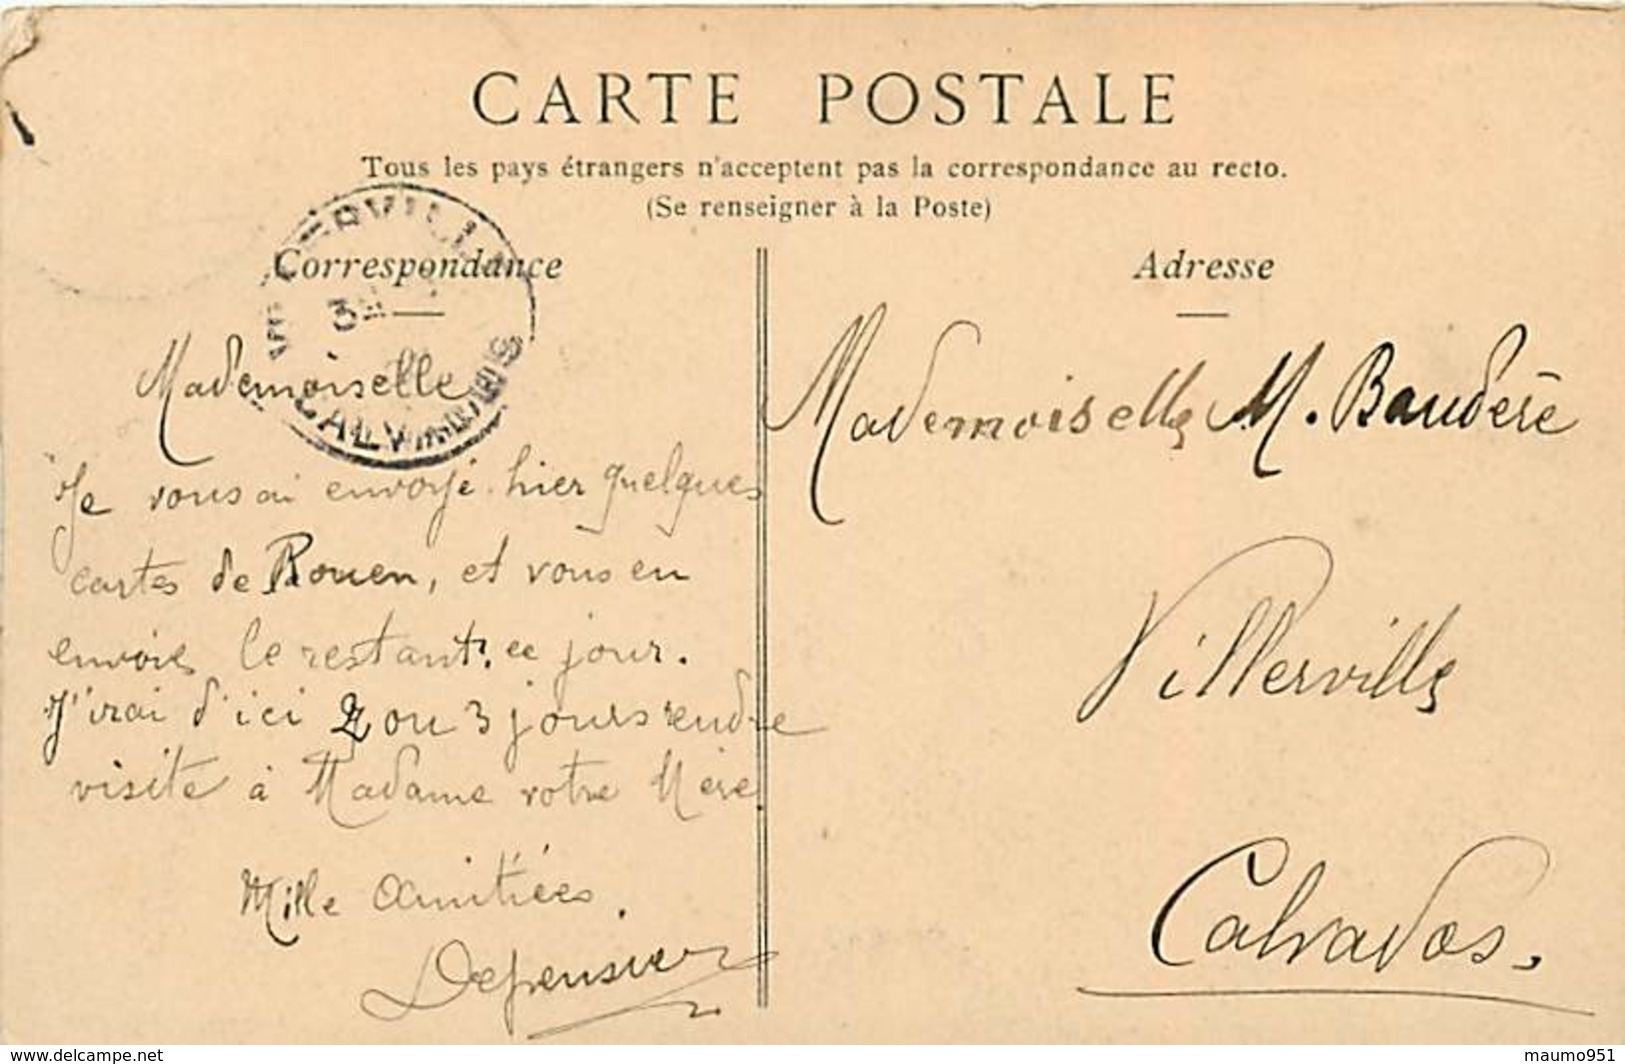 CARTE POSTALE
Tous les pays étrangers n'acceptent pas la correspondance au recto.
(Se renseigner à la Poste)
Correspondance
Mademoiselle
Je vous ai envoyé hier quelques
cartes de Rouen, et vous en
envoie le restant ce jour.
J'irai d'ici 2 ou 3 jours rendre
visite à Madame votre Mère.
Mille Amitiées.
CALVADOS
Adresse
Mademoiselle M. Baudère
Villerville
Calvados.
www.delcampe.net
maumo951